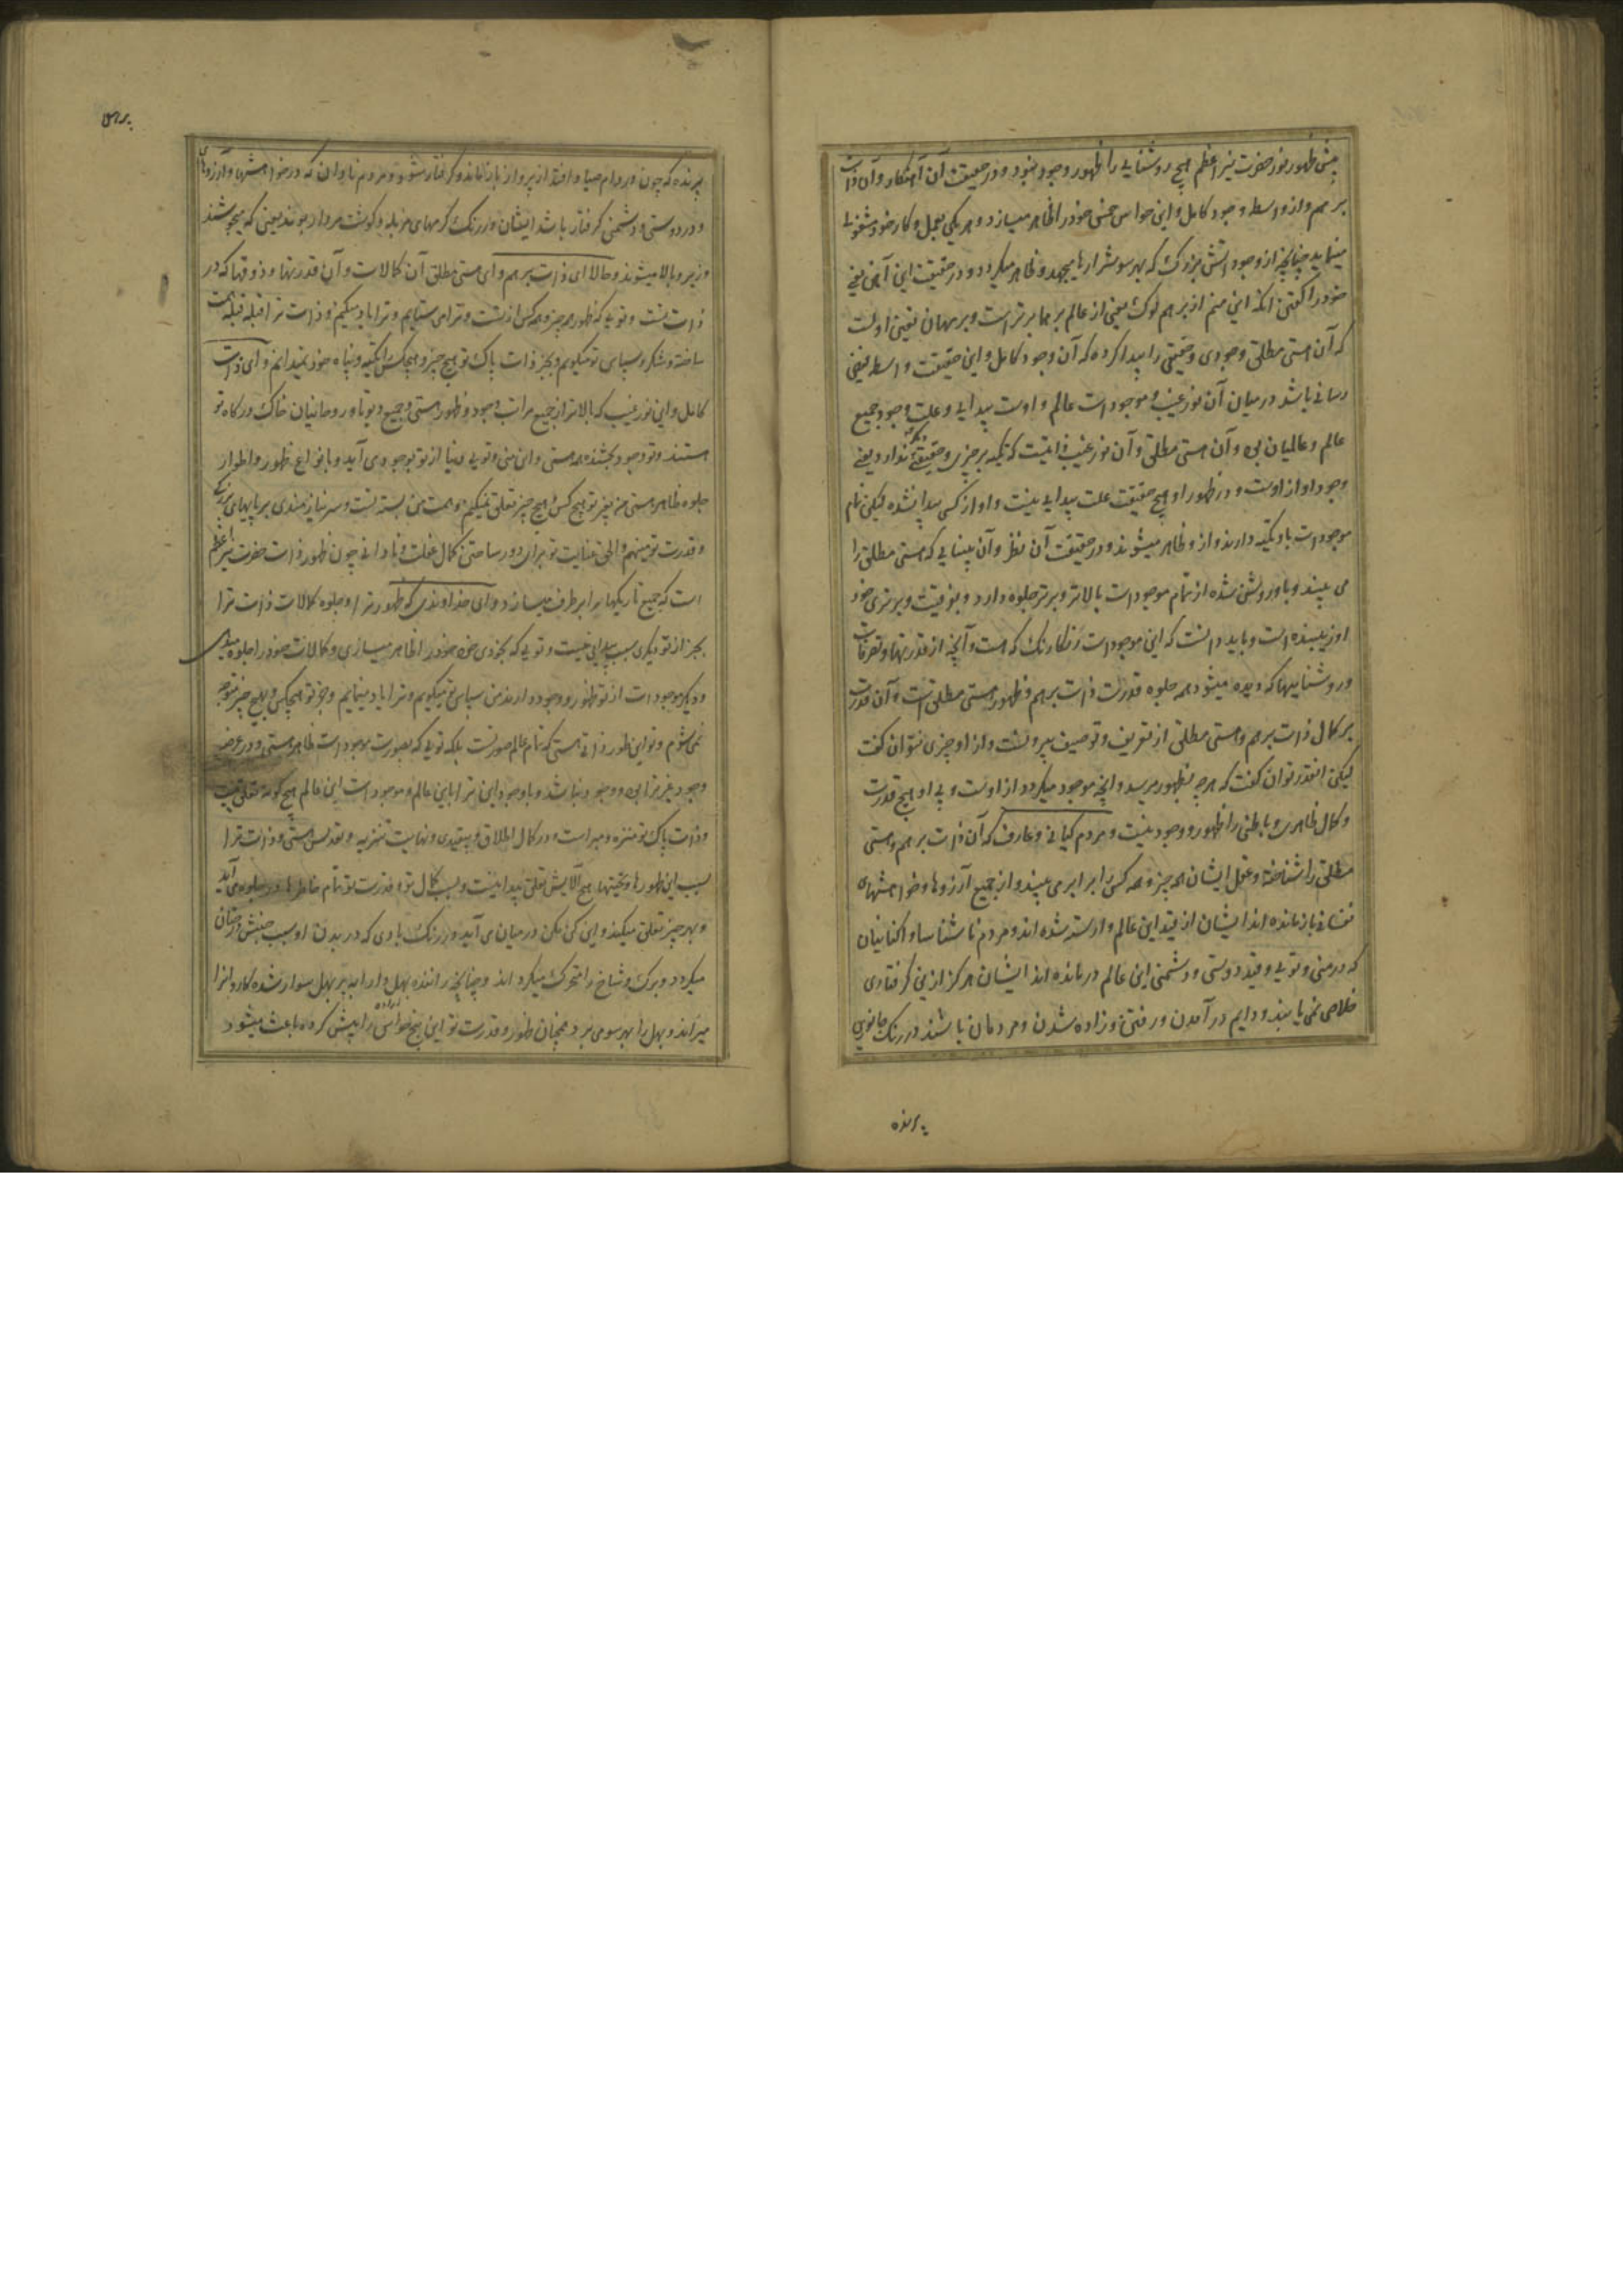 پیش ظهور نور حضرت نیر اعظم هیچ روشنایی را ظهور و وجود نبود و در حقیقت آن آهنکار و آن ذات
برهم و از و اسطه وجود کامل و این حواس خمس خود را ظاهر میسازد و هر یکی بعمل و کار خود مشغولی
مینماید چنانچه از وجود آتش بزرک که بهر سو شرارها میجهد و ظاهر میکردد و در حقیقت این آهن یعنی
خود را کفتن انکه این منم از برهم لوک یعنی از عالم برهما برتر است و برهمان تعین اولست
که آن هستی مطلق وجودی و حقیقی را پیدا کرده که آن وجود کامل و این حقیقت و اسطه فیض
رسانی باشد درمیان آن نور غیب و موجودات عالم و اوست پیدایی و علت وجود جمیع
عالم و عالمیان بی و آن هستی مطلق و آن نور غیب ذاتیست که تکیه بر چیزی و حقیقتی ندارد یعنی
وجود او از اوست و در ظهور او هیچ حقیقت علت پیدایی نیست و او از کسی پیدا نشده لیکن تمام
موجودات باو تکیه دارند و از و ظاهر میشوند و در حقیقت آن نظر و آن بینایی که هستی مطلق را
می بیند و باو روشن شده از تمام موجودات بالاتر و برتر جلوه دارد و بفوقیت و برتری خود
او زیبنده است و باید دانست که این موجودات رنکارنک که هست و آنچه از قدرتها و تصرفات
و روشناییها که دیده میشود همه جلوه قدرت ذات برهم و ظهور هستی مطلق است و آن قدرت
بر کمال ذات برهم و هستی مطلق از تعریف و توصیف بیرونست و از او چیزی نتوان کفت
لیکن انقدر توان کفت که هرچه بظهور میرسد و انچه موجود میکردد از اوست و بی او هیچ قدرت
و کمال ظاهری و باطنی را ظهور و وجود نیست و مردم کیانی و عارف که آن ذات برهم و هستی
مطلق را شناخته و عقل ایشان همه چیز و همه کس را برابر می بیند و از جمیع آرزوها و خواهشهای
نفسانی بازمانده اند ایشان از قید این عالم وارسته شده اند و مردم ناشناسا و اکنانیان
که در منی و تویی و قید دوستی و دشمنی این عالم درمانده اند ایشان هرکز ازین کرفتاری
خلاصی نمی یابند و دایم در آمدن و رفتن و زاده شدن و مردمان باشند در رنک جانوری
پرنده
پرنده که چون در دام صیاد افتد از پرواز باز ماند و کرفتار شود و مردم نادان که در خواهشها و آرزوهای
و در دوستی و دشمنی کرفتار باشد ایشان در رنک کرمهای مزبله و کوشت مردار بوند یعنی که میجوشند
و زیر و بالا میشوند و حالا ای ذات برهم و ای هستی مطلق آن کمالات و آن قدرتها و ذوقها که در
ذات تست و تویی که ظهور همه چیز و همه کس از تست و ترا می ستایم و ترا یاد میکنم و ذات ترا قبله همت
ساخته و شکر و سپاس تو میکویم و بجز ذات پاک تو هیچ چیز و هیچکس را تکیه و پناه خود نمیدانم و ای ذات
کامل و این نور غیب که بالاتر از جمیع مراتب وجود و ظهور هستی و جمیع دیوتا و روحانیان خاک درکاه تو
هستند و تو وجود بخشنده همه هستی و این منی و تویی دنیا از تو بوجود می آید و بانواع ظهور و اطوار
جلوه ظاهر هستی من بغیر تو بهیچ کس و هیچ چیز تعلق نمیکنم و همت من بسته تست و سر نیازمندی بر پایهای بزرک
و قدرت تو مینهم و الحق عنایت تو برای دور ساختن کمال غفلت و نادانی چون ظهور ذات حضرت نیر اعظم
است که جمیع تاریکیها را برطرف میسازد و ای خداوندی که ظهور ترا و جلوه کمالات ذات ترا
بجز از تو دیکری سبب پیدایی نیست و تویی که بخودی خود خود را ظاهر میسازی و کمالات خود را جلوه میدهی
و دیکر موجودات از تو ظهور و وجود دارند من سپاس تو میکویم و ترا یاد مینمایم و جز تو بهیچکس و بهیچ چیز متوجه
نمی شوم و تو این طور ذاتی هستی که تمام عالم صورتست بلکه تویی که بصورت موجودات ظاهر هستی و در عرصه
وجود غیر ترا بود و وجود نباشد و باوجود این ترا باین عالم و موجودات این عالم هیچ کونه تعلق نیست
و ذات پاک تو منزه و مبراست و در کمال اطلاق و بیقیدی و نهایت تنزیه و تقدس هستی و ذات ترا
بسبب این ظهورها و تعینها هیچ آلایش تعلق پیدا نیست و بسبب کمال تو و قدرت تو تمام خاطرها در جلوه می آید
و بهر چیز تعلق میکیرند و این کن مکن درمیان می آید در رنک بادی که در بدن او سبب جنبش درختان
میکردد و برک و شاخ را متحرک میکرداند و چنانچه راننده بهل و ارابه بر بهل سوار شده کاو انرا
میراند و بهل را بهر سو می برد همچنان ظهور و قدرت تو این پنج حواس را پیش کرده باعث میشود